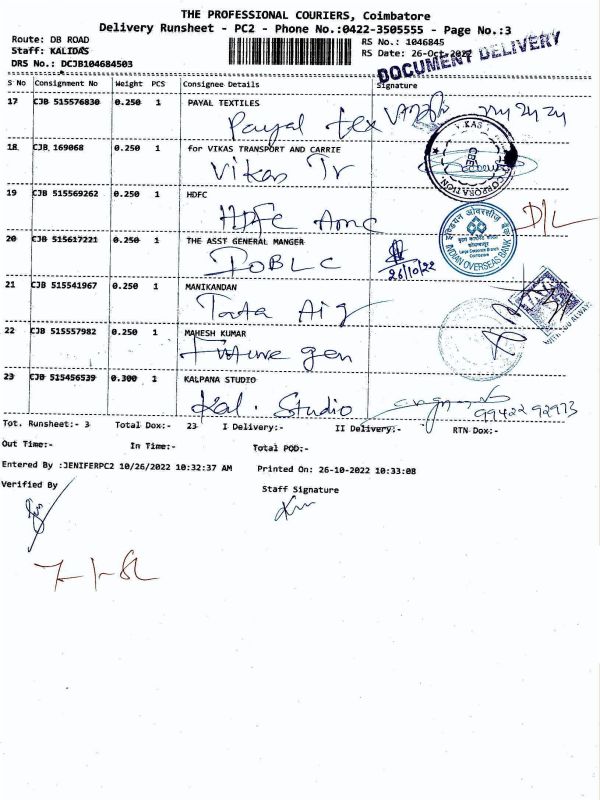 THE PROFESSIONAL COURIERS, Coimbatore
Delivery Runsheet - PC2 - Phone No.:0422-3505555 - Page No.:3
Route: DB ROAD
RS No.: 1046845
Staff: KALIDAS
RS Date: 26-Oct-2022
DRS No.: DCJB104684503
DOCUMENT DELIVERY
S No Consignment No Weight PCS Consignee Details Signature
17 CJB 515576830 0.250 1 PAYAL TEXTILES
Payal tex
18 CJB 169068 0.250 1 for VIKAS TRANSPORT AND CARRIE
Vikas Tr
VIKAS CORPORATION CBE
19 CJB 515569262 0.250 1 HDFC
HDFC Amc
D/L
20 CJB 515617221 0.250 1 THE ASST GENERAL MANGER
IOBLC
26/10/22
इण्डियन ओवरसीज़ बैंक
INDIAN OVERSEAS BANK
21 CJB 515541967 0.250 1 MANIKANDAN
Tata Aig
22 CJB 515557982 0.250 1 MAHESH KUMAR
Future gen
23 CJB 515456539 0.300 1 KALPANA STUDIO
Kal. Studio
99422 92973
Tot. Runsheet:- 3 Total Dox:- 23 I Delivery:- II Delivery:- RTN Dox:-
Out Time:- In Time:- Total POD:-
Entered By :JENIFERPC2 10/26/2022 10:32:37 AM Printed On: 26-10-2022 10:33:08
Verified By Staff Signature